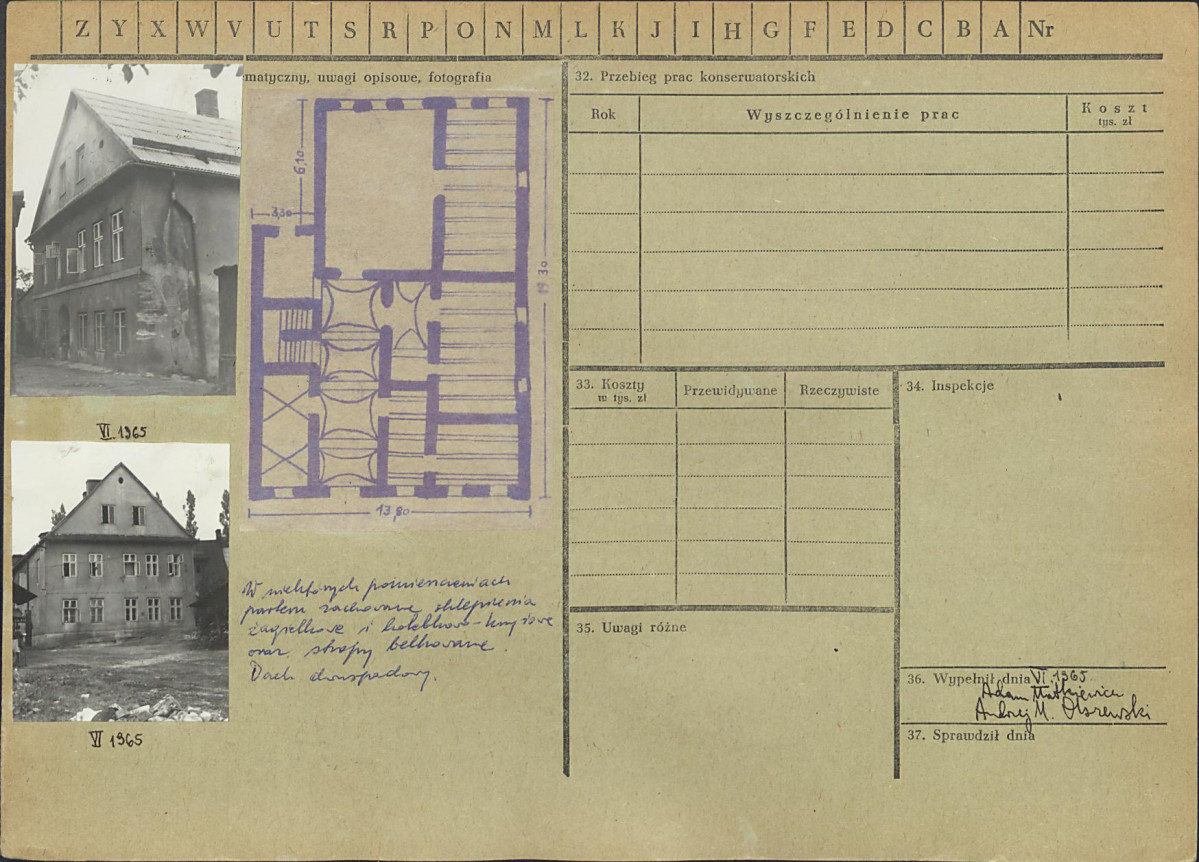 Z Y X W V U T S R P O N M L K J I H G F E D C B A Nr
matyczny, uwagi opisowe, fotografia
6,10
3,30
30
13,80
VI. 1965
VI 1965
W niektórych pomieszczeniach
parteru zachowane sklepienia
żagielkowe i kolebkowo-krzyżowe
oraz stropy belkowane.
Dach dwuspadowy.
32. Przebieg prac konserwatorskich
Rok
Wyszczególnienie prac
Koszt
tys. zł
33. Koszty
w tys. zł
Przewidywane
Rzeczywiste
34. Inspekcje
35. Uwagi różne
36. Wypełnił dnia VI 1965
Adam
Andrzej M. Olszewski
37. Sprawdził dnia